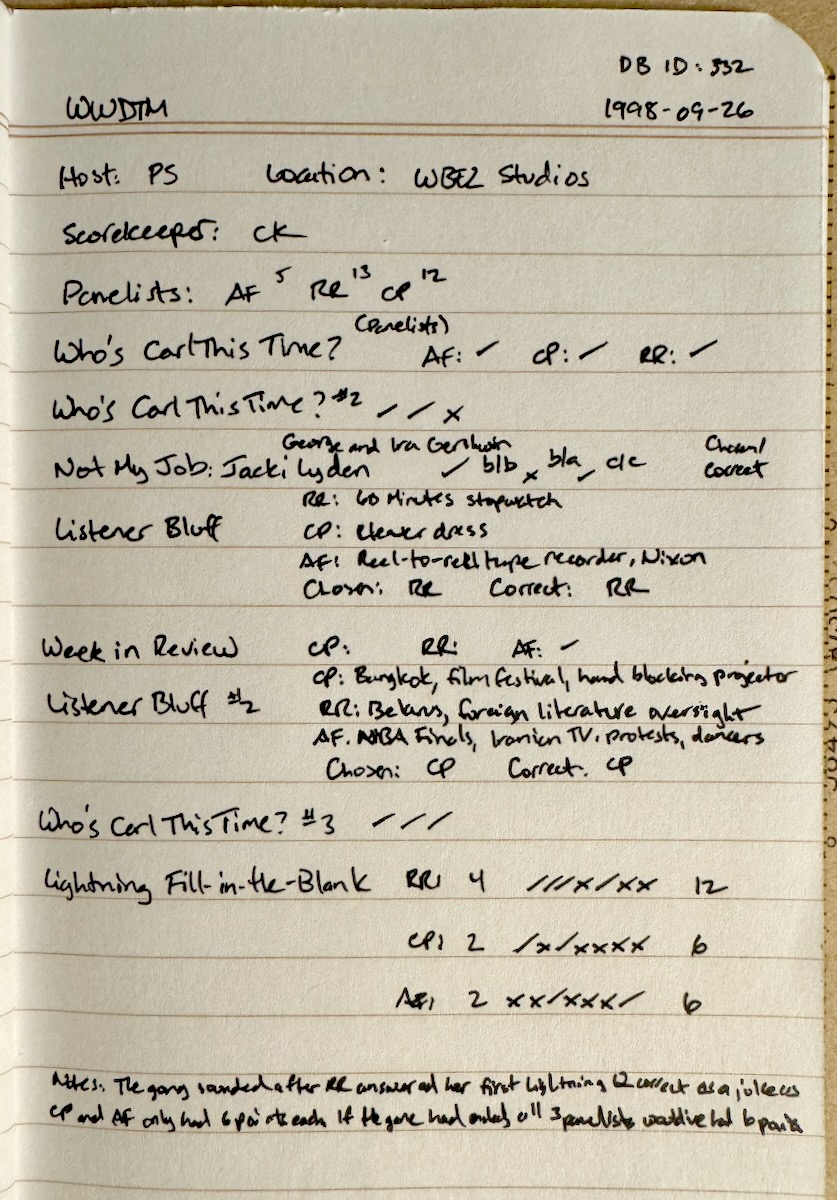 DB ID: 332
WWDTM 1998-09-26
Host: PS Location: WBEZ Studios
Scorekeeper: CK
Panelists: AF 5 RR 13 CP 12
(Panelists)
Who's Carl This Time? AF: ✓ CP: ✓ RR: ✓
Who's Carl This Time? #2 ✓ ✓ x
George and Ira Gershwin Chosen/
Not My Job: Jacki Lyden ✓ b/b x b/a ✓ c/c Correct
RR: 60 Minutes stopwatch
Listener Bluff CP: dress
AF: Reel-to-reel tape recorder, Nixon
Chosen: RR Correct: RR
Week in Review CP: RR: AF: ✓
CP: Bangkok, film festival, hand blocking projector
Listener Bluff #2 RR: Belarus, foreign literature oversight
AF: NBA Finals, Iranian TV, protests, dancers
Chosen: CP Correct: CP
Who's Carl This Time? #3 ✓ ✓ ✓
Lightning Fill-in-the-Blank RR: 4 ✓✓✓x✓xx 12
CP: 2 ✓x✓xxxx 6
AF: 2 xx✓xxx✓ 6
Notes: The gong sounded after RR answered her first lightning Q correct as a joke as
CP and AF only had 6 points each. If the game had ended all 3 panelists would've had 6 points